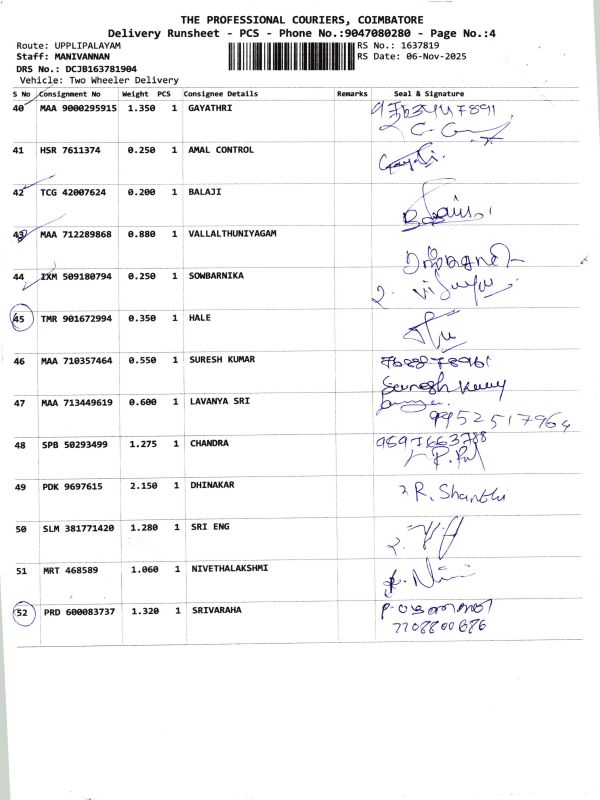 THE PROFESSIONAL COURIERS, COIMBATORE
Delivery Runsheet - PCS - Phone No.:9047080280 - Page No.:4
Route: UPPLIPALAYAM
RS No.: 1637819
Staff: MANIVANNAN
RS Date: 06-Nov-2025
DRS No.: DCJB163781904
Vehicle: Two Wheeler Delivery
S No Consignment No Weight PCS Consignee Details Remarks Seal & Signature
40 MAA 9000295915 1.350 1 GAYATHRI
41 HSR 7611374 0.250 1 AMAL CONTROL
42 TCG 42007624 0.200 1 BALAJI
43 MAA 712289868 0.880 1 VALLALTHUNIYAGAM
44 IXM 509180794 0.250 1 SOWBARNIKA
2. Vijaya
45 TMR 901672994 0.350 1 HALE
46 MAA 710357464 0.550 1 SURESH KUMAR
7688878961
Suresh Kumar
47 MAA 713449619 0.600 1 LAVANYA SRI
9952517964
48 SPB 50293499 1.275 1 CHANDRA
49 PDK 9697615 2.150 1 DHINAKAR
R. Shanthi
50 SLM 381771420 1.280 1 SRI ENG
51 MRT 468589 1.060 1 NIVETHALAKSHMI
52 PRD 600083737 1.320 1 SRIVARAHA
7708800686